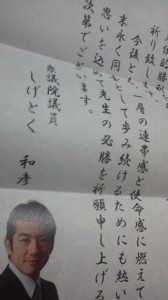 祈り致しま
今後とも
の連帯感と使命感に燃えて
末永く同
として歩み続けるためにも熱い
思いを込めて先生の必勝を祈願申し上げる
次第でございます。
衆議院議員
しげとく 和彦